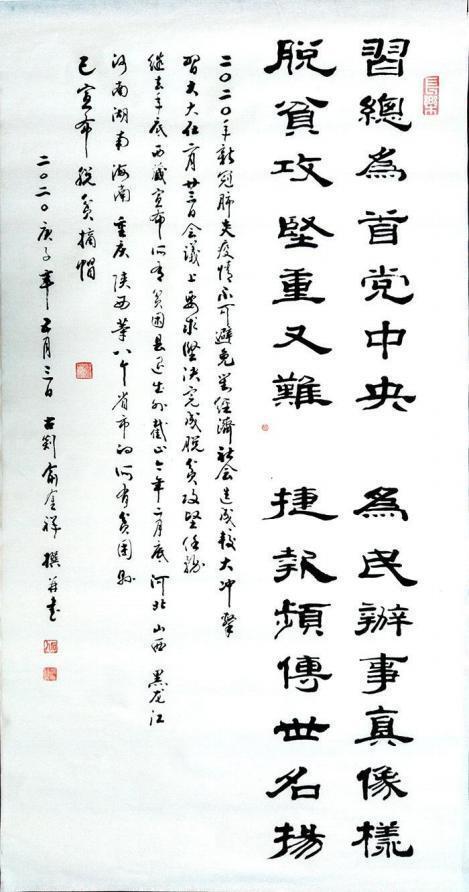 長樂
習總為首党中央 為民辦事真像樣
脱貧攻堅重又難 捷報頻傳世名揚
二〇二〇年新冠肺炎疫情不可避免對經濟社会造成較大冲擊
習大大在二月廿三日会議上要求堅决完成脱贫攻堅任務
继去年底西藏宣布所有贫困县退出外截止今年二月底河北 山西 黑龙江
河南 湖南 海南 重庆 陕西等八个省市的所有贫困县
已宣布脱贫摘帽
二〇二〇庚子年五月三日 古剡俞金祥撰并书